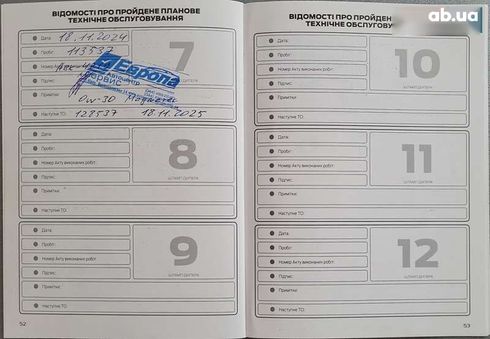 ВІДОМОСТІ ПРО ПРОЙДЕНЕ ПЛАНОВЕ
ТЕХНІЧНЕ ОБСЛУГОВУВАННЯ
Дата: 18.11.2024
Пробіг: 113537
Номер Акту
Підпис:
Примітки: 0w-30
Наступне ТО: 128537 18.11.2025
7
Європа
Автоцентр
сервис
Дата:
Пробіг:
Номер Акту виконаних робіт:
Підпис:
Примітки:
Наступне ТО:
8
ШТАМП ДИЛЕРА
Дата:
Пробіг:
Номер Акту виконаних робіт:
Підпис:
Примітки:
Наступне ТО:
9
ШТАМП ДИЛЕРА
52
ВІДОМОСТІ ПРО ПРОЙДЕНЕ
ТЕХНІЧНЕ ОБСЛУГОВУ
ab.ua
Дата:
Пробіг:
Номер Акту виконаних робіт:
Підпис:
Примітки:
Наступне ТО:
10
ШТАМП ДИЛЕРА
Дата:
Пробіг:
Номер Акту виконаних робіт:
Підпис:
Примітки:
Наступне ТО:
11
ШТАМП ДИЛЕРА
Дата:
Пробіг:
Номер Акту виконаних робіт:
Підпис:
Примітки:
Наступне ТО:
12
ШТАМП ДИЛЕРА
53